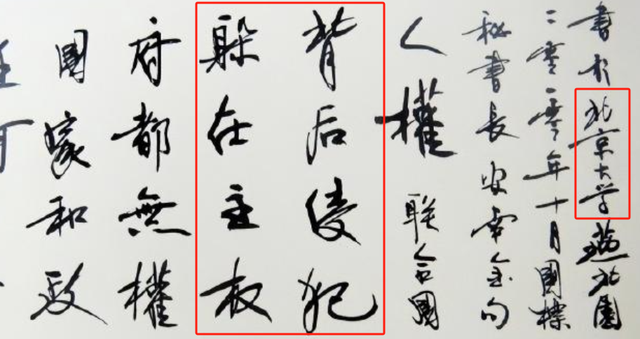 國家和政
府都無權
躲在主板
背后侵犯
人權 聯合國
秘書長安南金句
二零二零年十月國標
書於北京大学燕北園